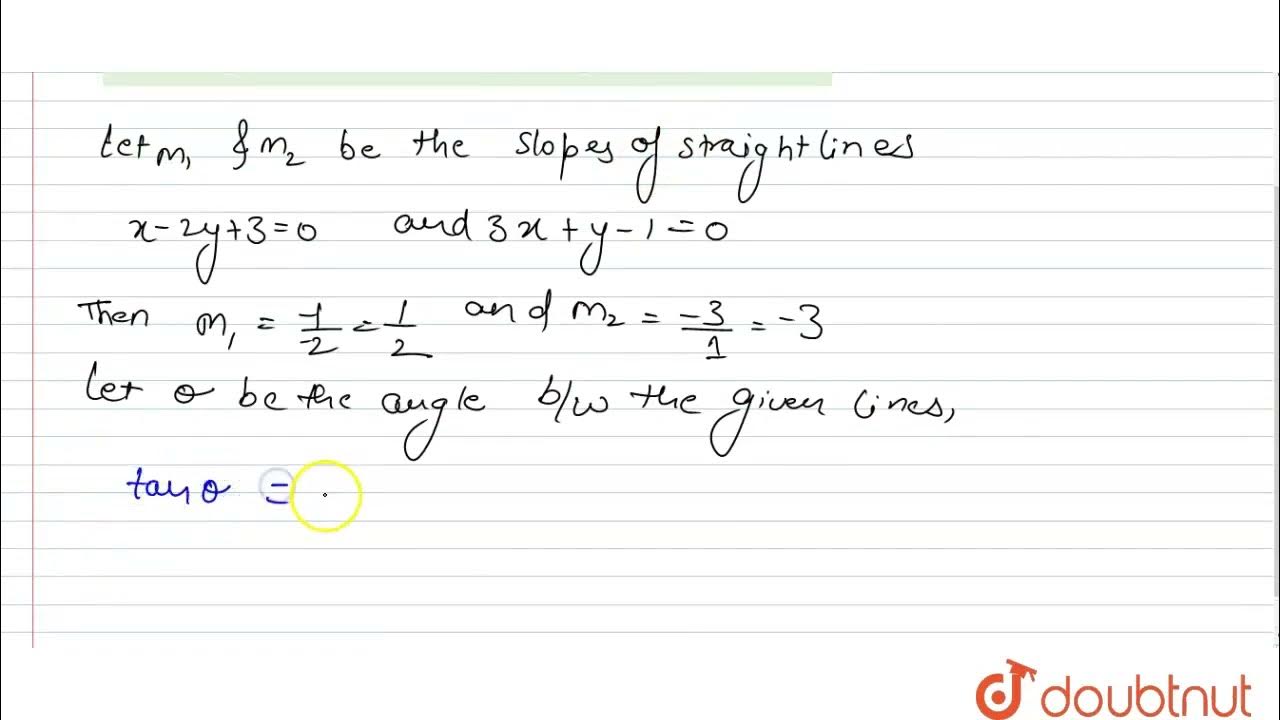 Let m₁ & m₂ be the slopes of straight lines
x-2y+3=0 and 3x+y-1=0
Then m₁ = -1/-2 = 1/2 and m₂ = -3/1 = -3
Let θ be the angle b/w the given lines,
tan θ =
doubtnut